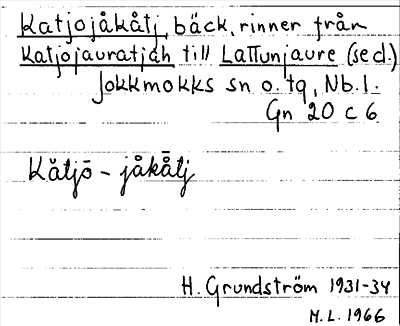 Katjojåkåtj, bäck, rinner från
Katjojauratjah till Lattunjaure (se d.)
Jokkmokks sn o. tg, Nb. l.
Gn 20 C 6
Kătjō - jåkā̊tj
H. Grundström 1931-34
M. L. 1966